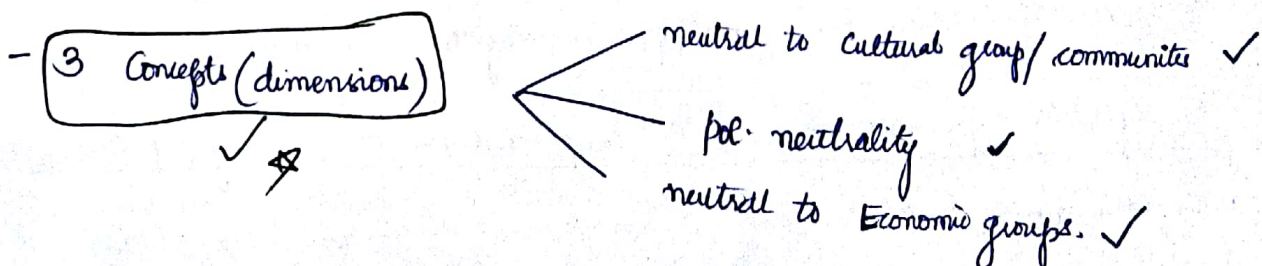 - 3 Concepts (dimensions)
neutrall to Cultural group/communites ✓
pol. neutrality ✓
neutrall to Economic groups. ✓